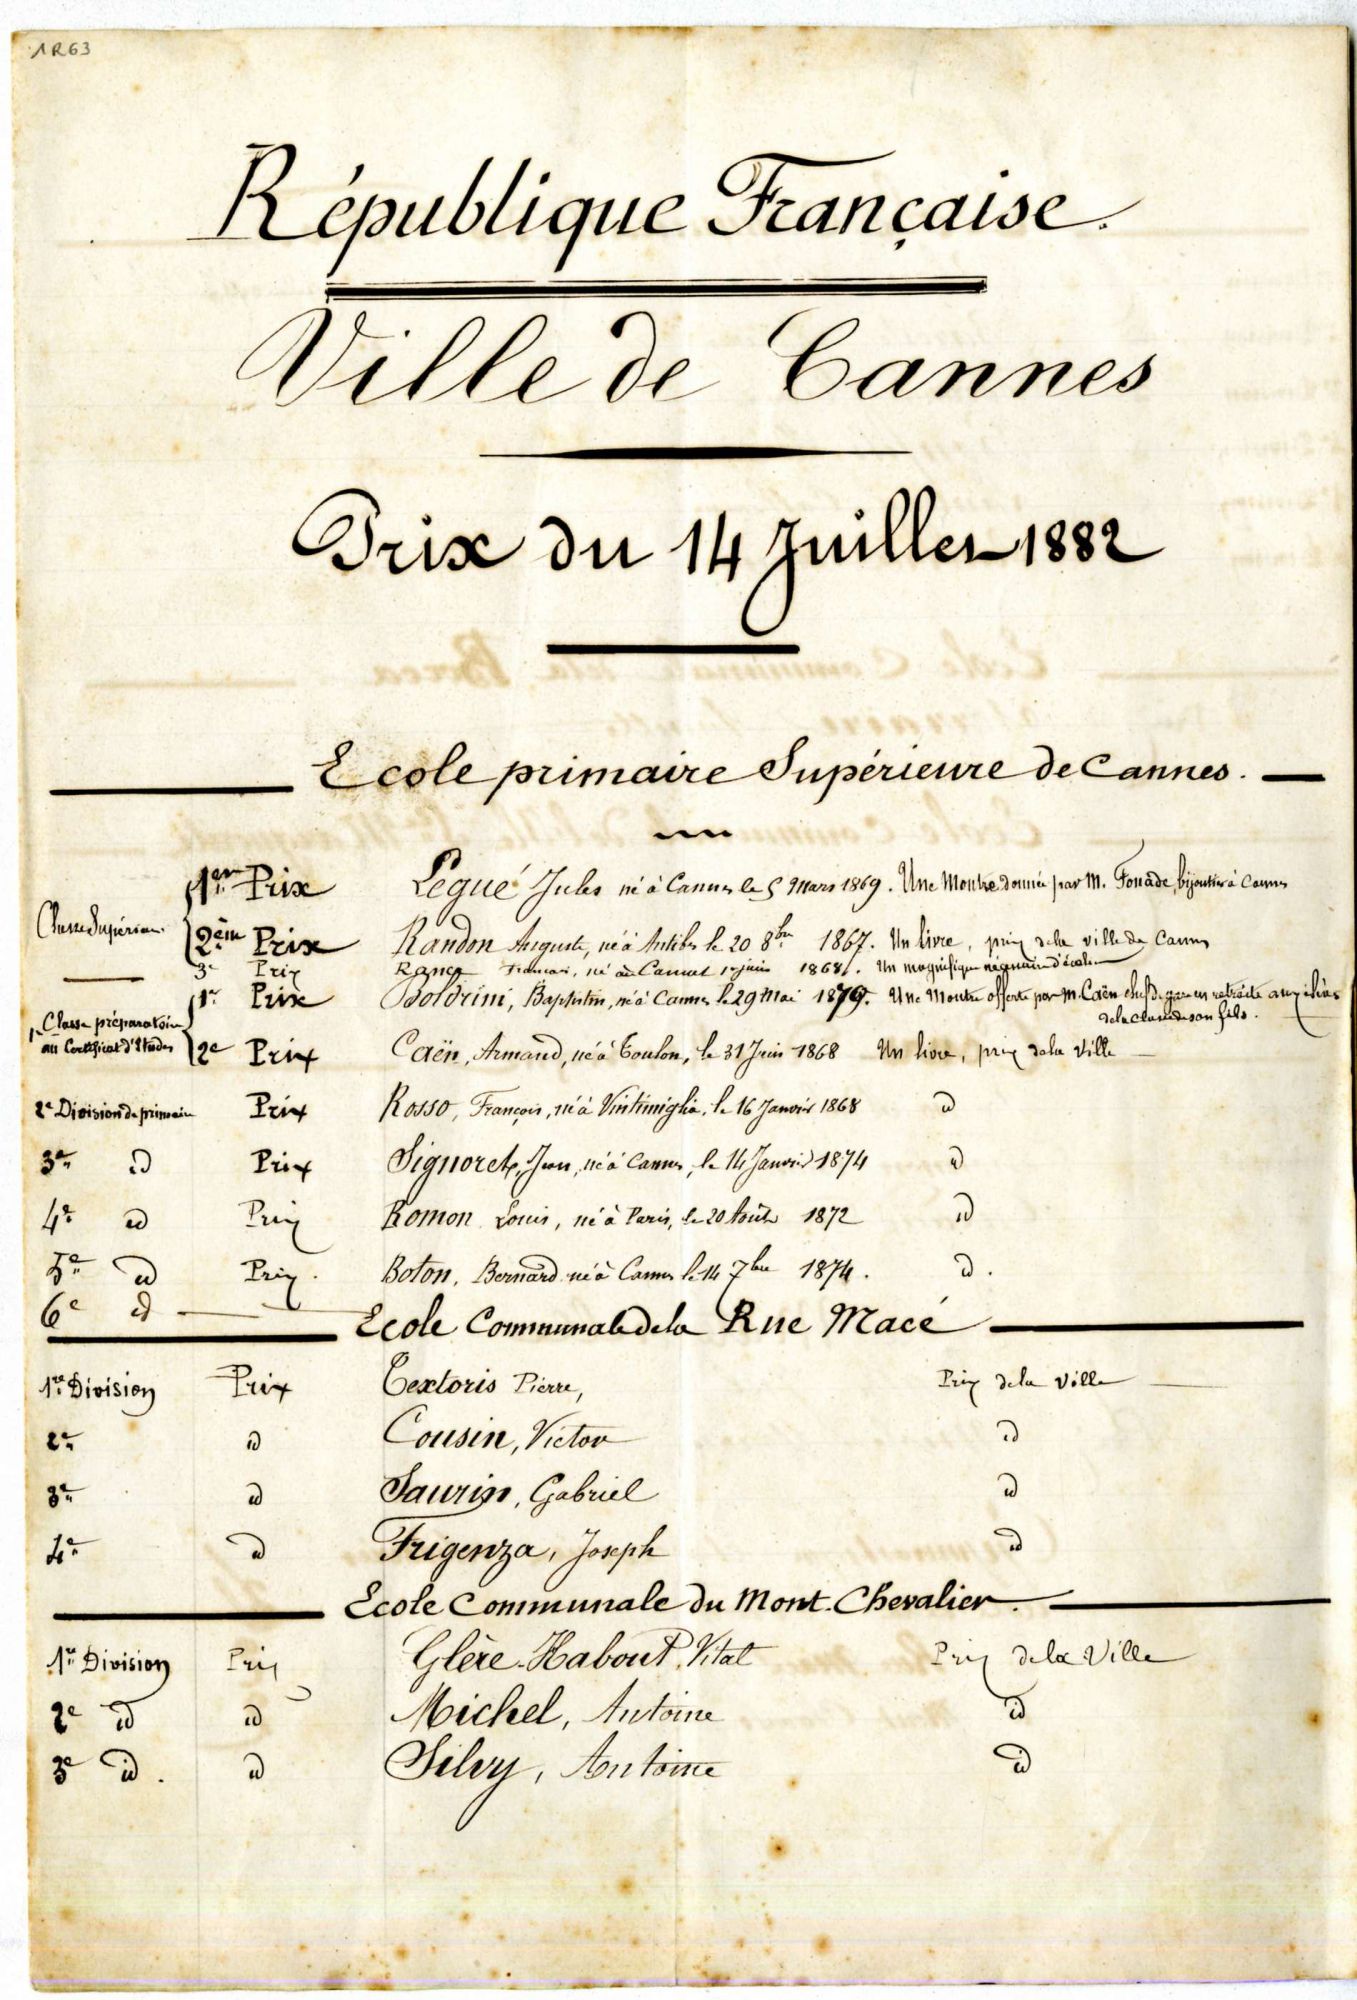 1R63
République Française.
Ville de Cannes
Prix du 14 Juillet 1882
Ecole primaire Supérieure de Cannes.
Classe Supérieure
1er Prix Legué Jules né à Cannes le 5 Mars 1869. Une Montre donnée par M. Fonade, bijoutier à Cannes
2ème Prix Randon Auguste, né à Antibes le 20 8bre 1867. Un livre, prix de la ville de Cannes
3e Prix François, né au Cannet 1er juin 1868. Un magnifique nécessaire d'école
Classe préparatoire
au Certificat d'Etudes
1er Prix Boldrini, Baptistin, né à Cannes le 29 Mai 1879. Une Montre offerte par M. Caën chef de gare en retraite aux élèves
de la classe de son fils.
2e Prix Caën, Armand, né à Toulon, le 31 Juin 1868 Un livre, prix de la Ville
2e Division de primaire Prix Rosso, François, né à Vintimiglia, le 16 Janvier 1868 id
3e id Prix Signoret, Jean, né à Cannes, le 14 Janvier 1874 id
4e id Prix Romon Louis, né à Paris, le 20 Août 1872 id
5e id Prix. Boton, Bernard né à Cannes le 14 7bre 1874. id.
6e id
Ecole Communale de la Rue Macé
1re Division Prix Textoris Pierre, Prix de la Ville
2e id Cousin, Victor id
3e id Saurin, Gabriel id
4e id Frigenza, Joseph id
Ecole Communale du Mont-Chevalier.
1re Division Prix Glère-Habout, Vital Prix de la Ville
2e id id Michel, Antoine id
3e id. id Silvy, Antoine id